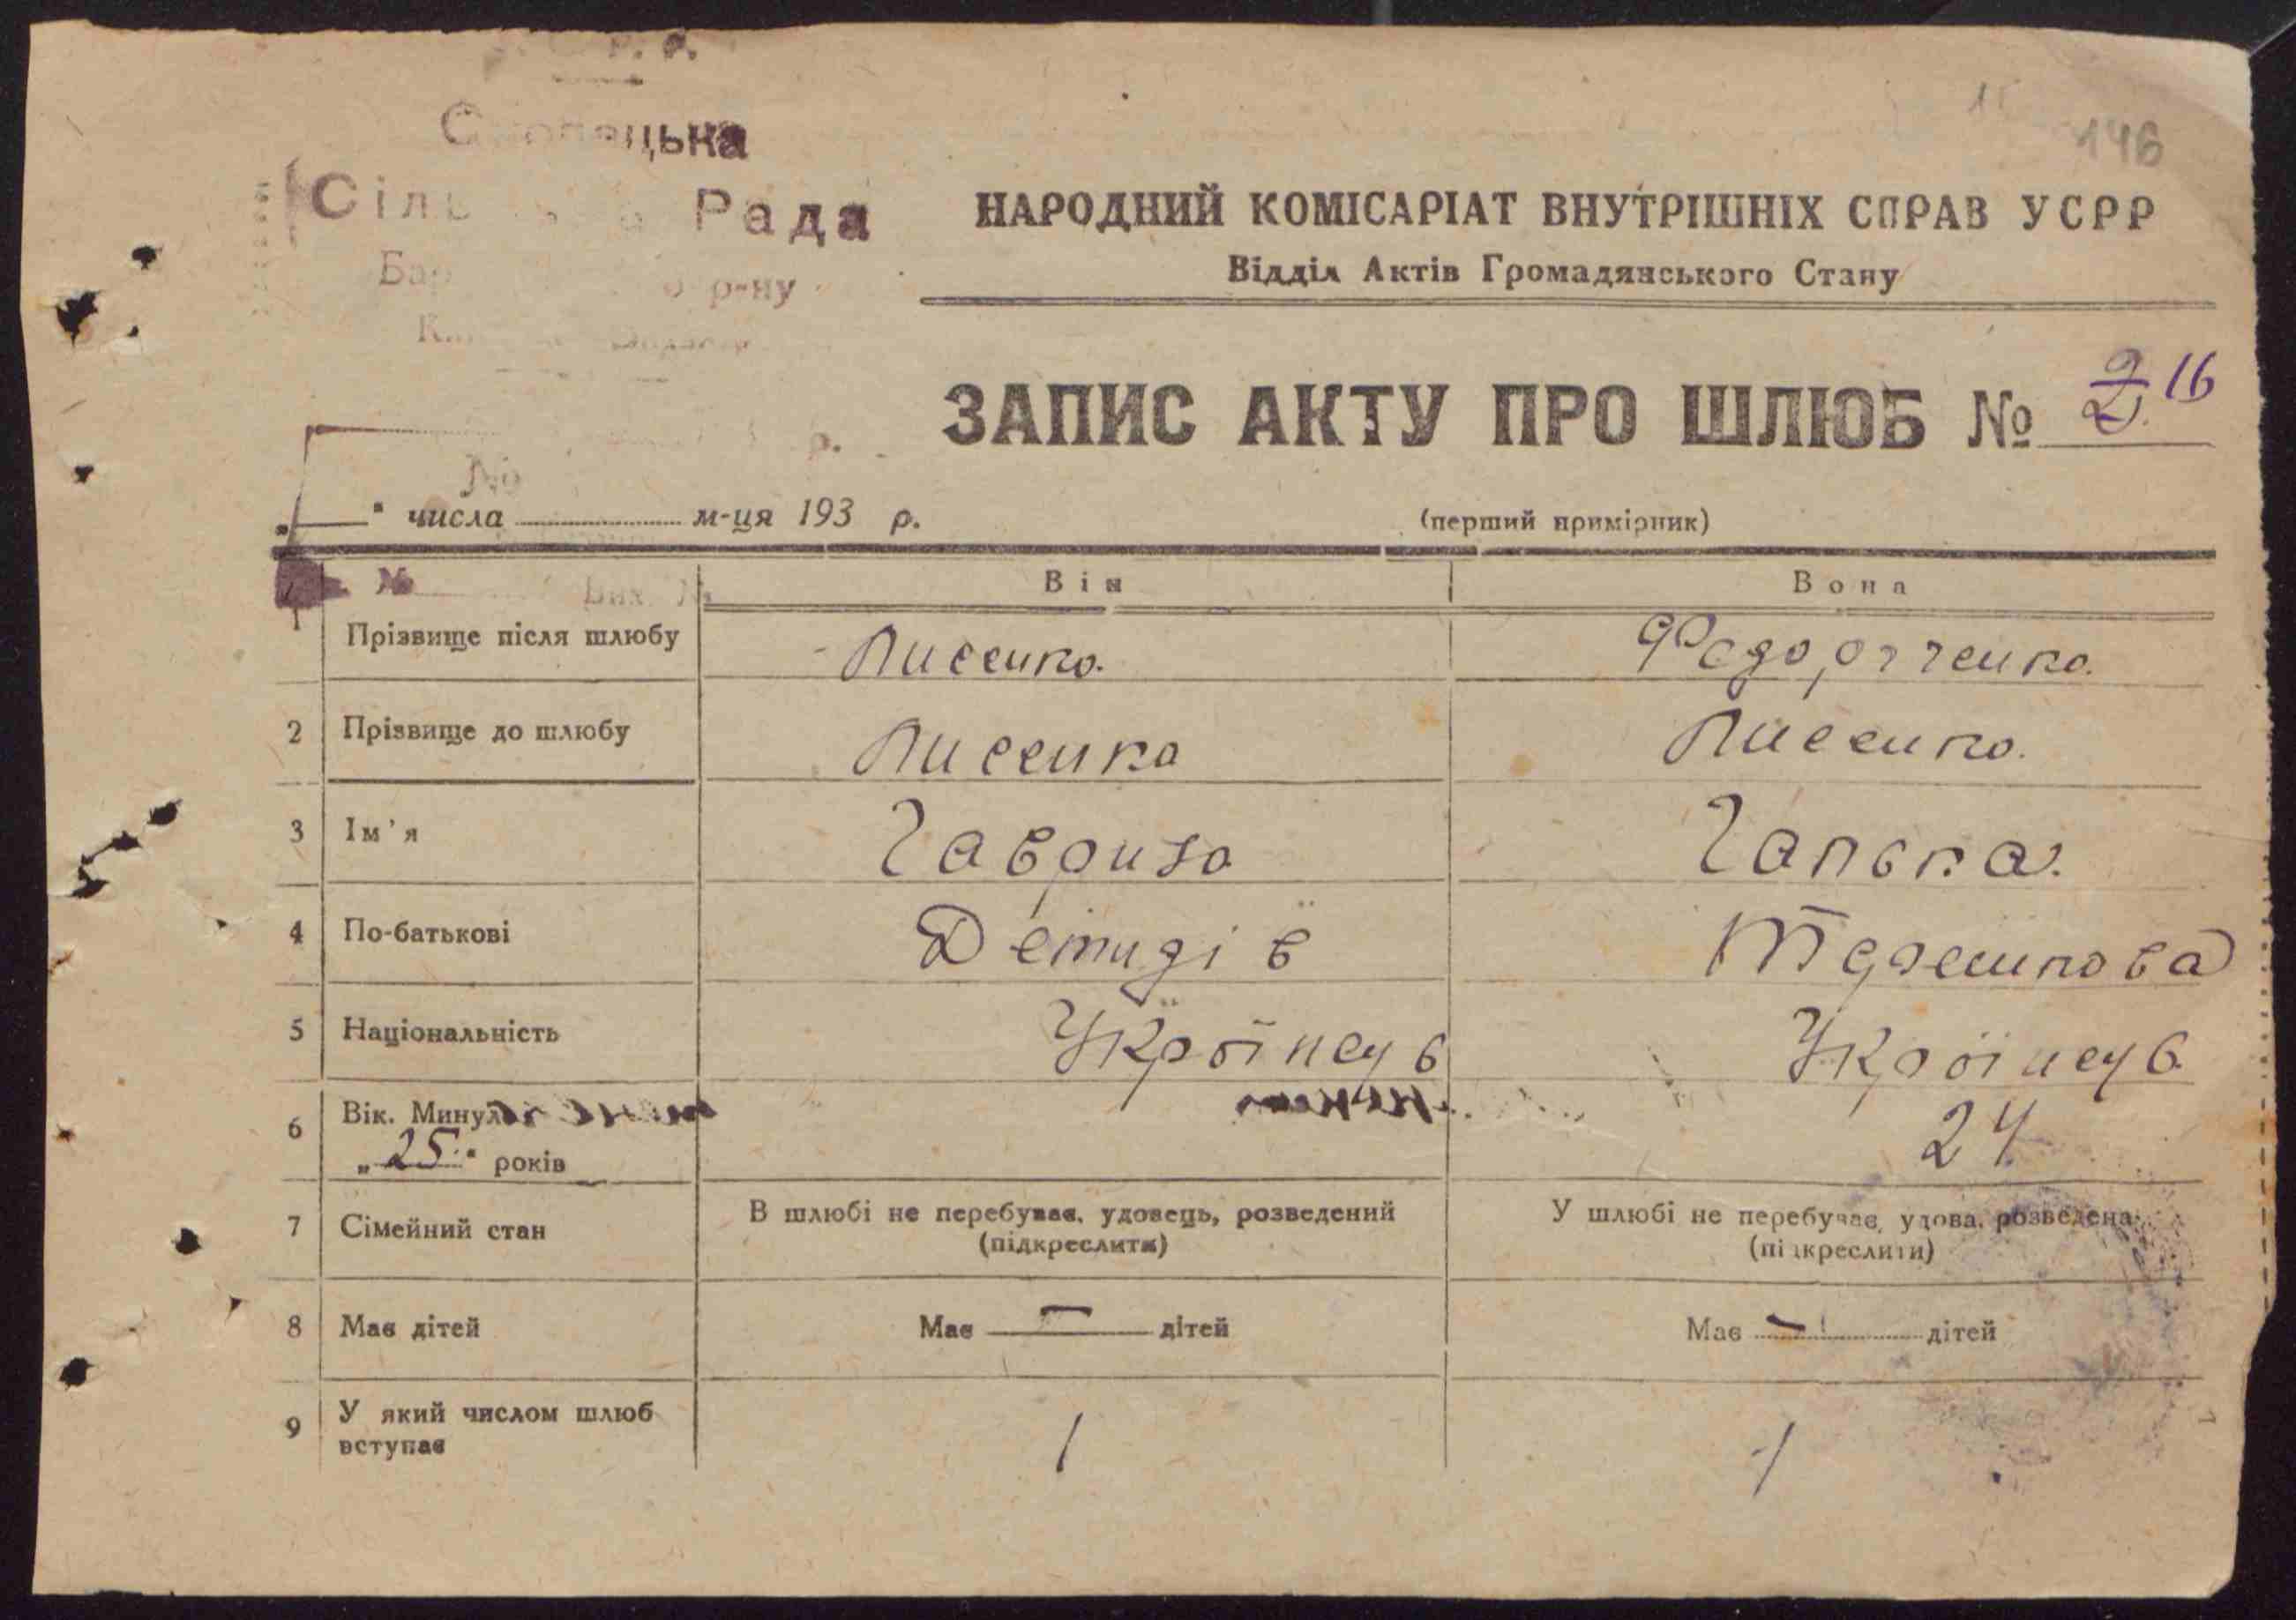 146
Сільська Рада
р-ну
НАРОДНИЙ КОМІСАРІАТ ВНУТРІШНІХ СПРАВ УСРР
Відділ Актів Громадянського Стану
ЗАПИС АКТУ ПРО ШЛЮБ № 16
р.
№
„ " числа м-ця 193 р.
(перший примірник)
№ Вих. №
Він Вона
1 Прізвище після шлюбу Лисенко. Федорченко.
2 Прізвище до шлюбу Лисенко Лисенко.
3 Ім'я Гаврило Гапька.
4 По-батькові Демидів Терешкова
5 Національність Українець Українець
6 Вік. Минуло
„25" років 24
7 Сімейний стан В шлюбі не перебуває, удовець, розведений У шлюбі не перебуває, удова, розведена
(підкреслити) (підкреслити)
8 Має дітей Має — дітей Має — дітей
9 У який числом шлюб
вступає 1 1